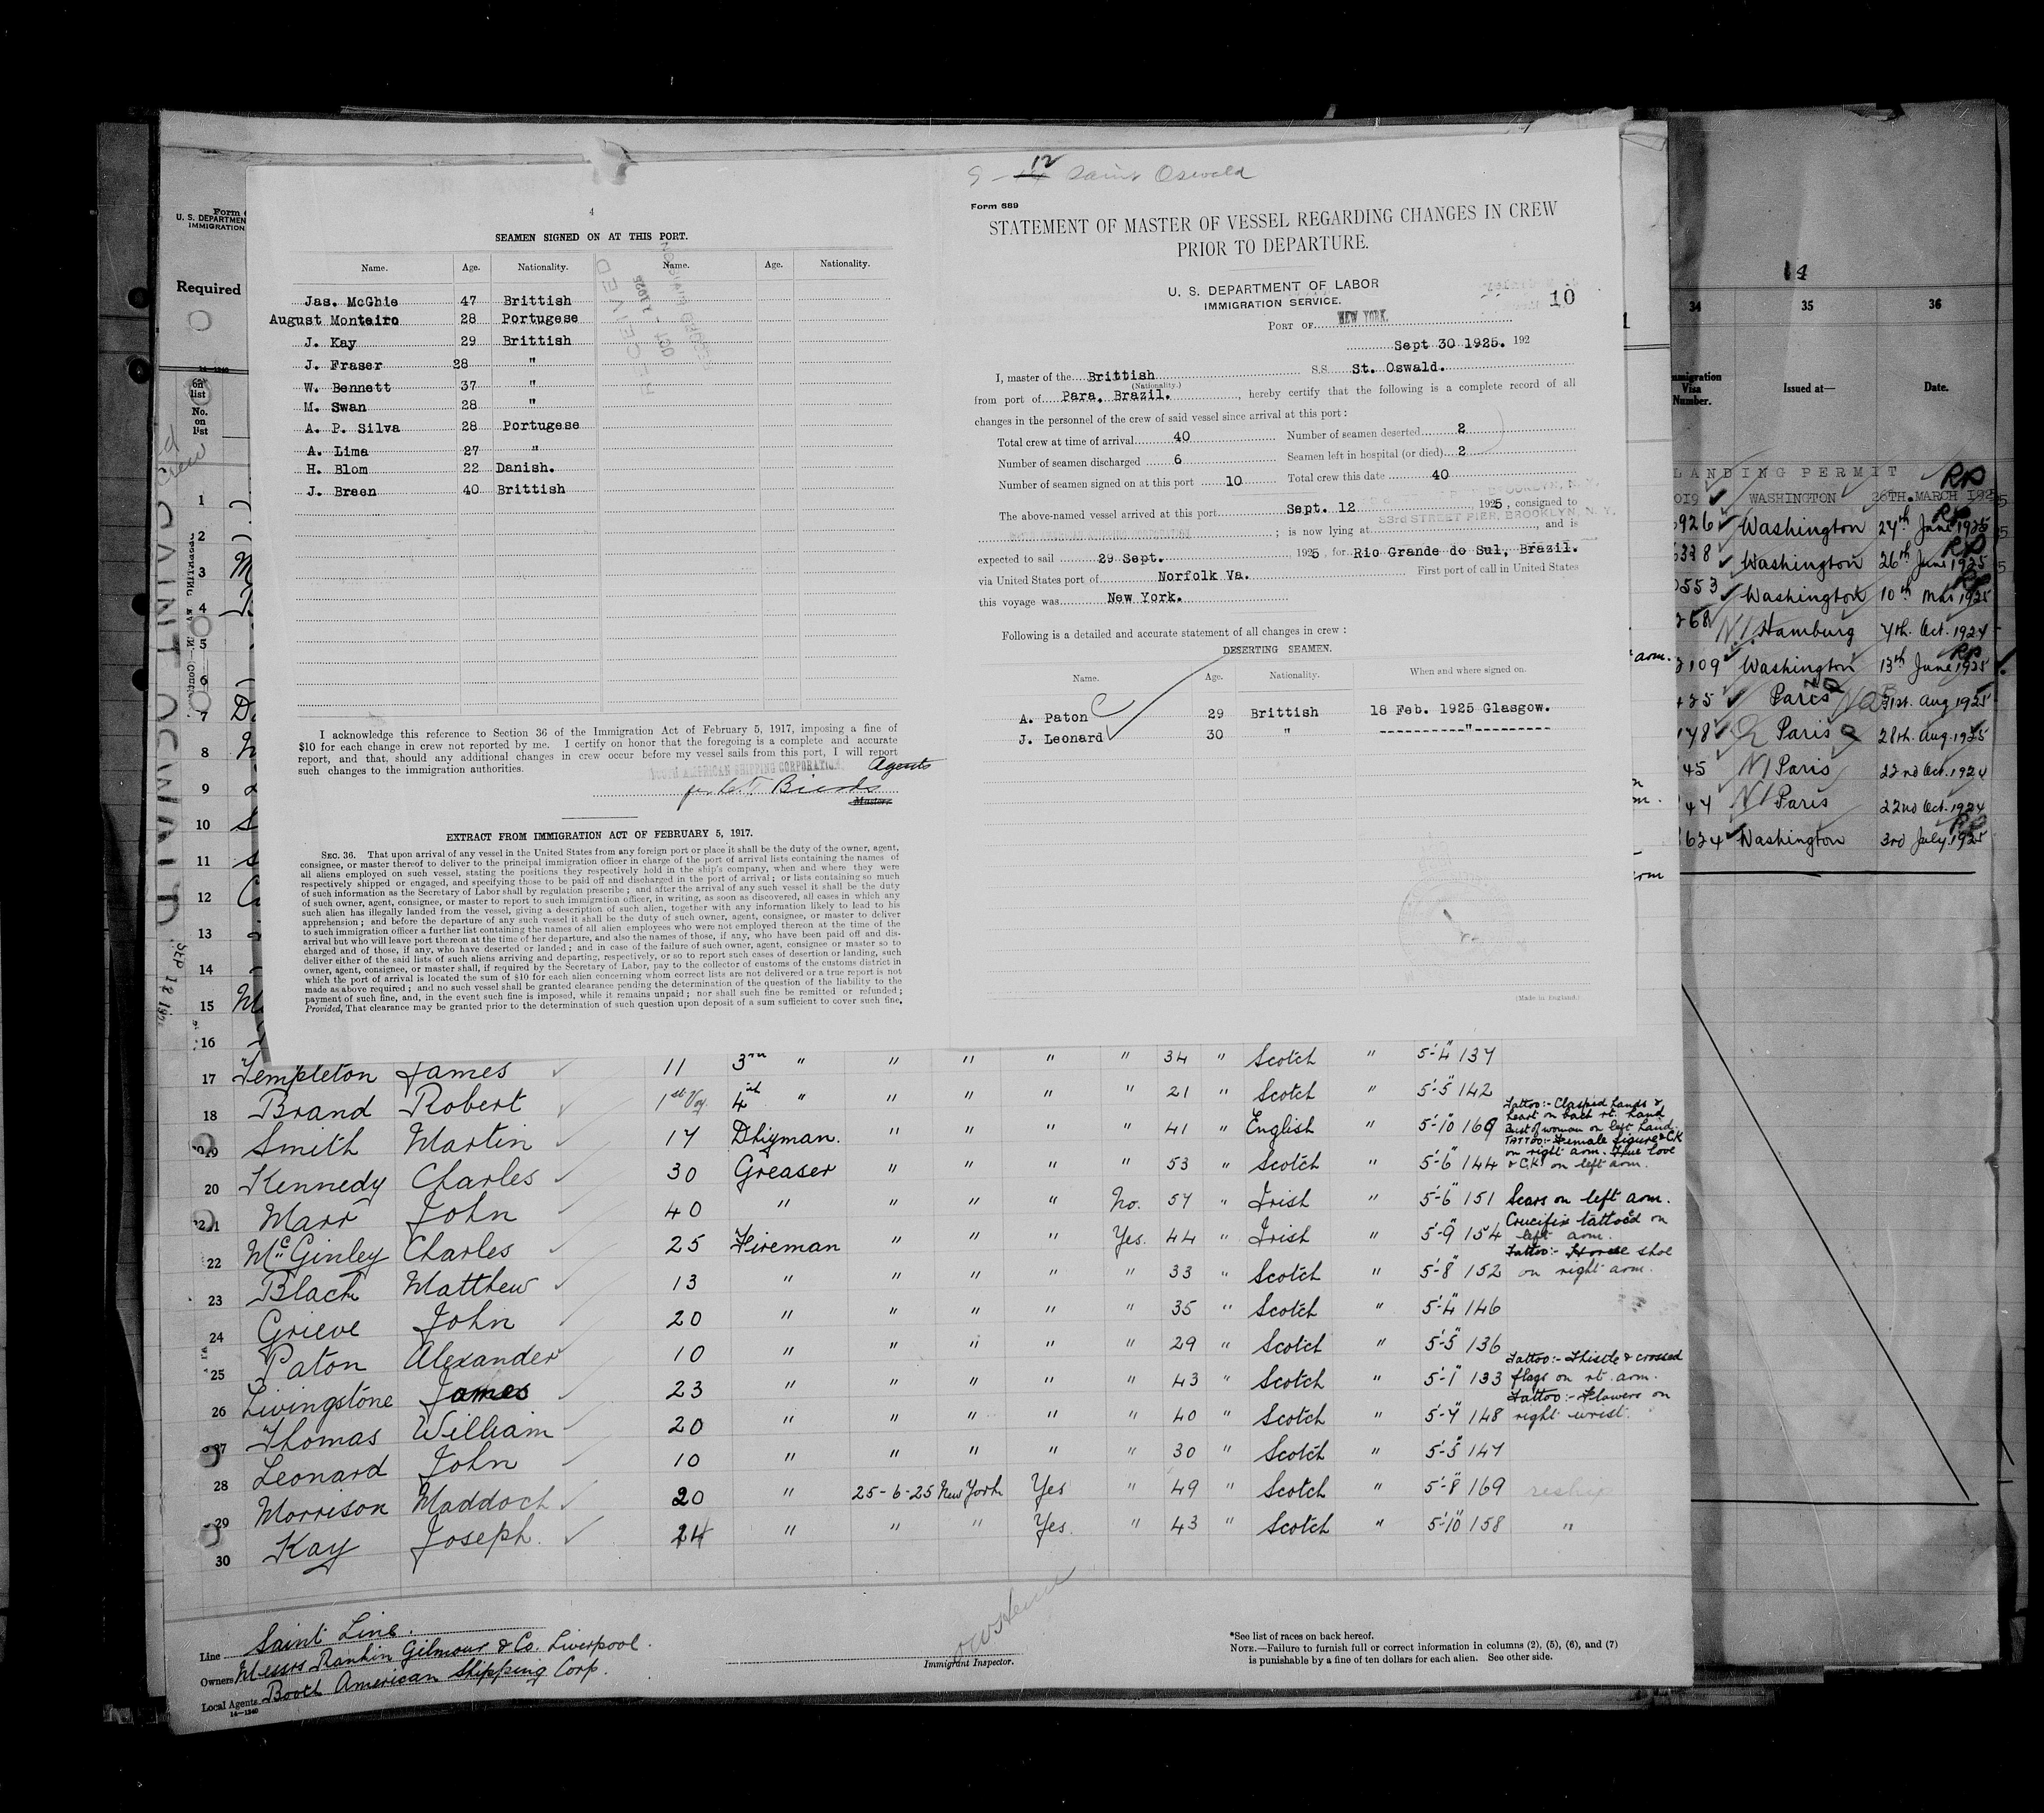 9 - 12 Saint Oswald
4
SEAMEN SIGNED ON AT THIS PORT.
Name. Age. Nationality. Name. Age. Nationality.
Jas. McGhie 47 Brittish
August Monteiro 28 Portugese
J. Kay 29 Brittish
J. Fraser 28 "
W. Bennett 37 "
M. Swan 28 "
A. P. Silva 28 Portugese
A. Lima 27 "
H. Blom 22 Danish.
J. Breen 40 Brittish
RECEIVED
I acknowledge this reference to Section 36 of the Immigration Act of February 5, 1917, imposing a fine of
$10 for each change in crew not reported by me. I certify on honor that the foregoing is a complete and accurate
report, and that, should any additional changes in crew occur before my vessel sails from this port, I will report
such changes to the immigration authorities.
AMERICAN SHIPPING CORPORATION. Agents
Master.
EXTRACT FROM IMMIGRATION ACT OF FEBRUARY 5, 1917.
SEC. 36. That upon arrival of any vessel in the United States from any foreign port or place it shall be the duty of the owner, agent,
consignee, or master thereof to deliver to the principal immigration officer in charge of the port of arrival lists containing the names of
all aliens employed on such vessel, stating the positions they respectively hold in the ship's company, when and where they were
respectively shipped or engaged, and specifying those to be paid off and discharged in the port of arrival; or lists containing so much
of such information as the Secretary of Labor shall by regulation prescribe; and after the arrival of any such vessel it shall be the duty
of such owner, agent, consignee, or master to report to such immigration officer, in writing, as soon as discovered, all cases in which any
such alien has illegally landed from the vessel, giving a description of such alien, together with any information likely to lead to his
apprehension; and before the departure of any such vessel it shall be the duty of such owner, agent, consignee, or master to deliver
to such immigration officer a further list containing the names of all alien employees who were not employed thereon at the time of the
arrival but who will leave port thereon at the time of her departure, and also the names of those, if any, who have been paid off and dis-
charged and of those, if any, who have deserted or landed; and in case of the failure of such owner, agent, consignee or master so to
deliver either of the said lists of such aliens arriving and departing, respectively, or so to report such cases of desertion or landing, such
owner, agent, consignee, or master shall, if required by the Secretary of Labor, pay to the collector of customs of the customs district in
which the port of arrival is located the sum of $10 for each alien concerning whom correct lists are not delivered or a true report is not
made as above required; and no such vessel shall be granted clearance pending the determination of the question of the liability to the
payment of such fine, and, in the event such fine is imposed, while it remains unpaid; nor shall such fine be remitted or refunded;
Provided, That clearance may be granted prior to the determination of such question upon deposit of a sum sufficient to cover such fine.
Form 689
STATEMENT OF MASTER OF VESSEL REGARDING CHANGES IN CREW
PRIOR TO DEPARTURE.
U. S. DEPARTMENT OF LABOR
IMMIGRATION SERVICE.
10
PORT OF NEW YORK.
Sept 30 1925. 192
I, master of the Brittish S.S. St. Oswald.
(Nationality.)
from port of Para, Brazil. , hereby certify that the following is a complete record of all
changes in the personnel of the crew of said vessel since arrival at this port:
Total crew at time of arrival 40 Number of seamen deserted 2
Number of seamen discharged 6 Seamen left in hospital (or died) 2
Number of seamen signed on at this port 10 Total crew this date 40
The above-named vessel arrived at this port Sept. 12 , 1925, consigned to
; is now lying at 33rd STREET PIER, BROOKLYN, N. Y. , and is
expected to sail 29 Sept. , 1925, for Rio Grande do Sul, Brazil.
via United States port of Norfolk Va. First port of call in United States
this voyage was New York.
Following is a detailed and accurate statement of all changes in crew:
DESERTING SEAMEN.
Name. Age. Nationality. When and where signed on.
A. Paton 29 Brittish 18 Feb. 1925 Glasgow.
J. Leonard 30 " ----------"----------
(Made in England.)
U. S. DEPARTMEN
IMMIGRATION
Required
No.
on
list
SAINT OSWALD
SEP 12 192
1
2
3
4
5
6
7
8
9
10
11
12
13
14
15
16
34 35 36
Visa
Number. Issued at— Date.
LANDING PERMIT
019 WASHINGTON 26TH. MARCH 1925
926 Washington 24th June 1925
338 Washington 26th June 1925
0553 Washington 10th Mar 1925
268 Hamburg 7th. Oct. 1924
3109 Washington 13th June 1925
425 Paris 31st. Aug 1925
148 Paris 28th. Aug. 1925
45 Paris 22nd Oct. 1924
44 Paris 22nd Oct. 1924
634 Washington 3rd July. 1925
17 Templeton James 11 3rd " " " " " 34 " Scotch " 5'-4" 137
18 Brand Robert 1st Voy. 4th " " " " " 21 " Scotch " 5'-5" 142
19 Smith Martin 17 Dkyman. " " " " 41 " English " 5'-10" 160 Tattoo:- Clasped hands & heart on back rt. hand Bust of woman on left hand.
20 Kennedy Charles 30 Greaser " " " " 53 " Scotch " 5'-6" 144 TATTOO:- Female figure & CK on right arm. True love & C.K. on left arm.
21 Marr John 40 " " " " No. 57 " Irish " 5'-6" 151 Scars on left arm.
22 McGinley Charles 25 Fireman " " " Yes. 44 " Irish " 5'-9" 154 Crucifix tattooed on left arm.
23 Black Matthew 13 " " " " " 33 " Scotch " 5'-8" 152 Tattoo:- Horse shoe on right arm.
24 Grieve John 20 " " " " " 35 " Scotch " 5'-4" 146
25 Paton Alexander 10 " " " " " 29 " Scotch " 5'-5" 136
26 Livingstone James 23 " " " " " 43 " Scotch " 5'-1" 133 Tattoo:- Thistle & crossed flags on rt. arm.
27 Thomas William 20 " " " " " 40 " Scotch " 5'-7" 148 Tattoo:- Flowers on right wrist.
28 Leonard John 10 " " " " " 30 " Scotch " 5'-5" 147
29 Morrison Maddock 20 " 25-6-25 New York Yes " 49 " Scotch " 5'-8" 169 reship
30 Kay Joseph. 24 " " " Yes. " 43 " Scotch " 5'-10" 158 "
Line Saint Line.
Owners Messrs Rankin Gilmour & Co. Liverpool.
Local Agents Booth American Shipping Corp.
14—1240
Immigrant Inspector.
*See list of races on back hereof.
NOTE.—Failure to furnish full or correct information in columns (2), (5), (6), and (7)
is punishable by a fine of ten dollars for each alien. See other side.